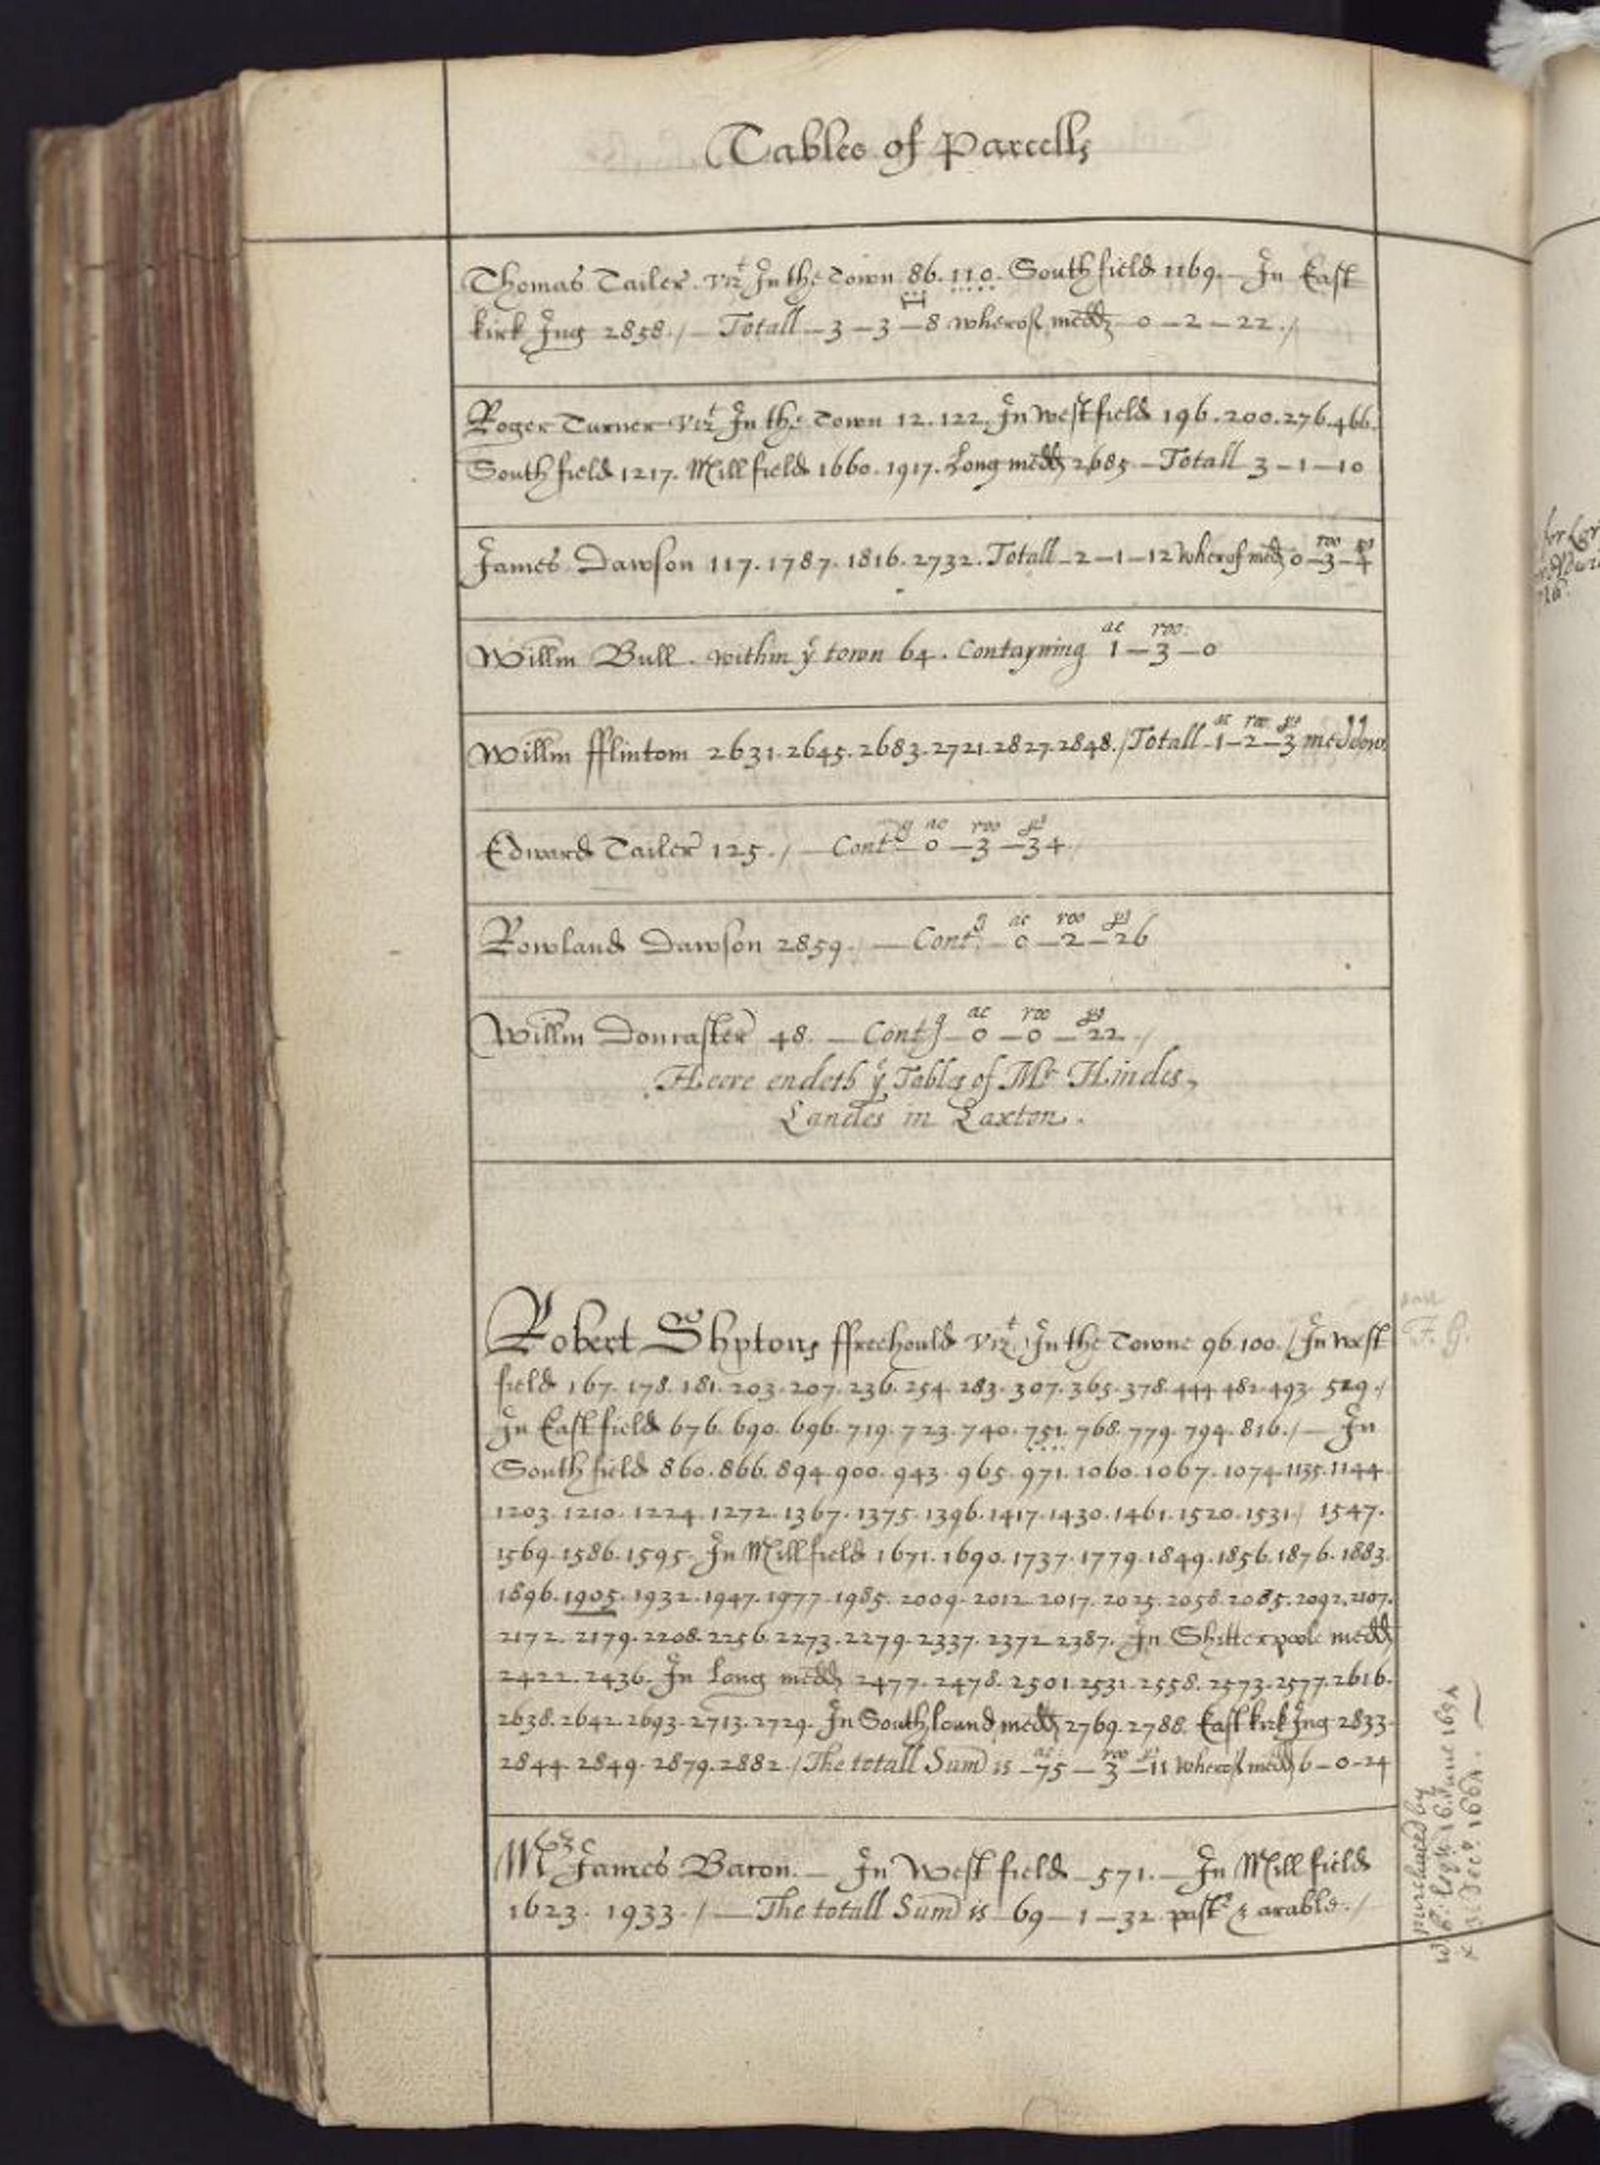 Tables of Parcells
Thomas Tailer. vizt In the Town 86. 110. South field 1169. — In East
kirk Ing 2858. / — Totall — 3 — 3 — 8 wherof medd 0 — 2 — 22 . /
Roger Turner vizt In the Town 12. 122. In west field 196. 200. 276. 466.
South field 1217. Mill field 1660. 1917. Long medd 2685 — Totall 3 — 1 — 10
roo p
James Dawson 117. 1787. 1816. 2732. Totall — 2 — 1 — 12 wherof medd 0 — 3 — 4
ac roo
Willm Bull. within ye town 64. Contayning 1 — 3 — 0
ac roo p
Willm fflintom 2631. 2645. 2683. 2721. 2827. 2848. / Totall 1 — 2 — 3 meddow
ac roo p
Edward Tailer 125. / — Contg 0 — 3 — 34 /
ac roo p
Rowland Dawson 2859. / — Contg — 0 — 2 — 26
ac roo p
Willm Doncaster 48. — Contg — 0 — 0 — 22 . /
Heere endeth ye Tables of Mr Hindes,
Landes in Laxton.
Robert Shptons ffreehould vizt. In the Towne 96. 100. / In west
field 167. 178. 181. 203. 207. 236. 254. 283. 307. 365. 378. 444 482. 493. 529. /
In East field 676. 690. 696. 719. 723. 740. 751. 768. 779. 794. 816. / — In
South field 860. 866. 894. 900. 943. 965. 971. 1060. 1067. 1074. 1135. 1144.
1203. 1210. 1224. 1272. 1367. 1375. 1396. 1417. 1430. 1461. 1520. 1531 / 1547.
1569. 1586. 1595. In Mill field 1671. 1690. 1737. 1779. 1849. 1856. 1876. 1883.
1896. 1905. 1932. 1947. 1977. 1985. 2009. 2012. 2017. 2025. 2058. 2085. 2092. 2107.
2172. 2179. 2208. 2256. 2273. 2279. 2337. 2372. 2387. In Shitterpoole medd
2422. 2436. In Long medd 2477. 2478. 2501. 2531. 2558. 2573. 2577. 2616.
2638. 2642. 2693. 2713. 2729. In South lound medd 2769. 2788. East kirk Ing 2833.
ac roo p
2844. 2849. 2879. 2882. / The totall Sum is — 75 — 3 — 11 wherof medd 6 — 0 — 24
Mr James Bacon. — In West field — 571. — In Mill field
1623. 1933. / — The totall Sum is 69 — 1 — 32 past & arable. /
purchased by
16 June 1654
Dec